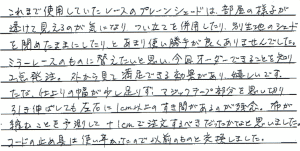 これまで使用していたレースのプレーンシェードは、部屋の様子が
透けて見えるのが気になり、つい立てを併用したり、別生地のシェード
を閉めたままにしたり、とあまり使い勝手が良くありませんでした。
ミラーレースのものに替えたいと思い、今回オーダーできることを知り
2窓発注。外から見て満足できる効果があり、嬉しいです。
ただ、仕上りの幅が少し足りず、マジックテープ部分を思い切り
引き伸ばしても左右に1cm以上のすき間があるのが残念。布が
縮むことを予測して+1cmで注文すべきだったかなと思いました。
コードの止め具は使い辛かったので以前のものと交換しました。